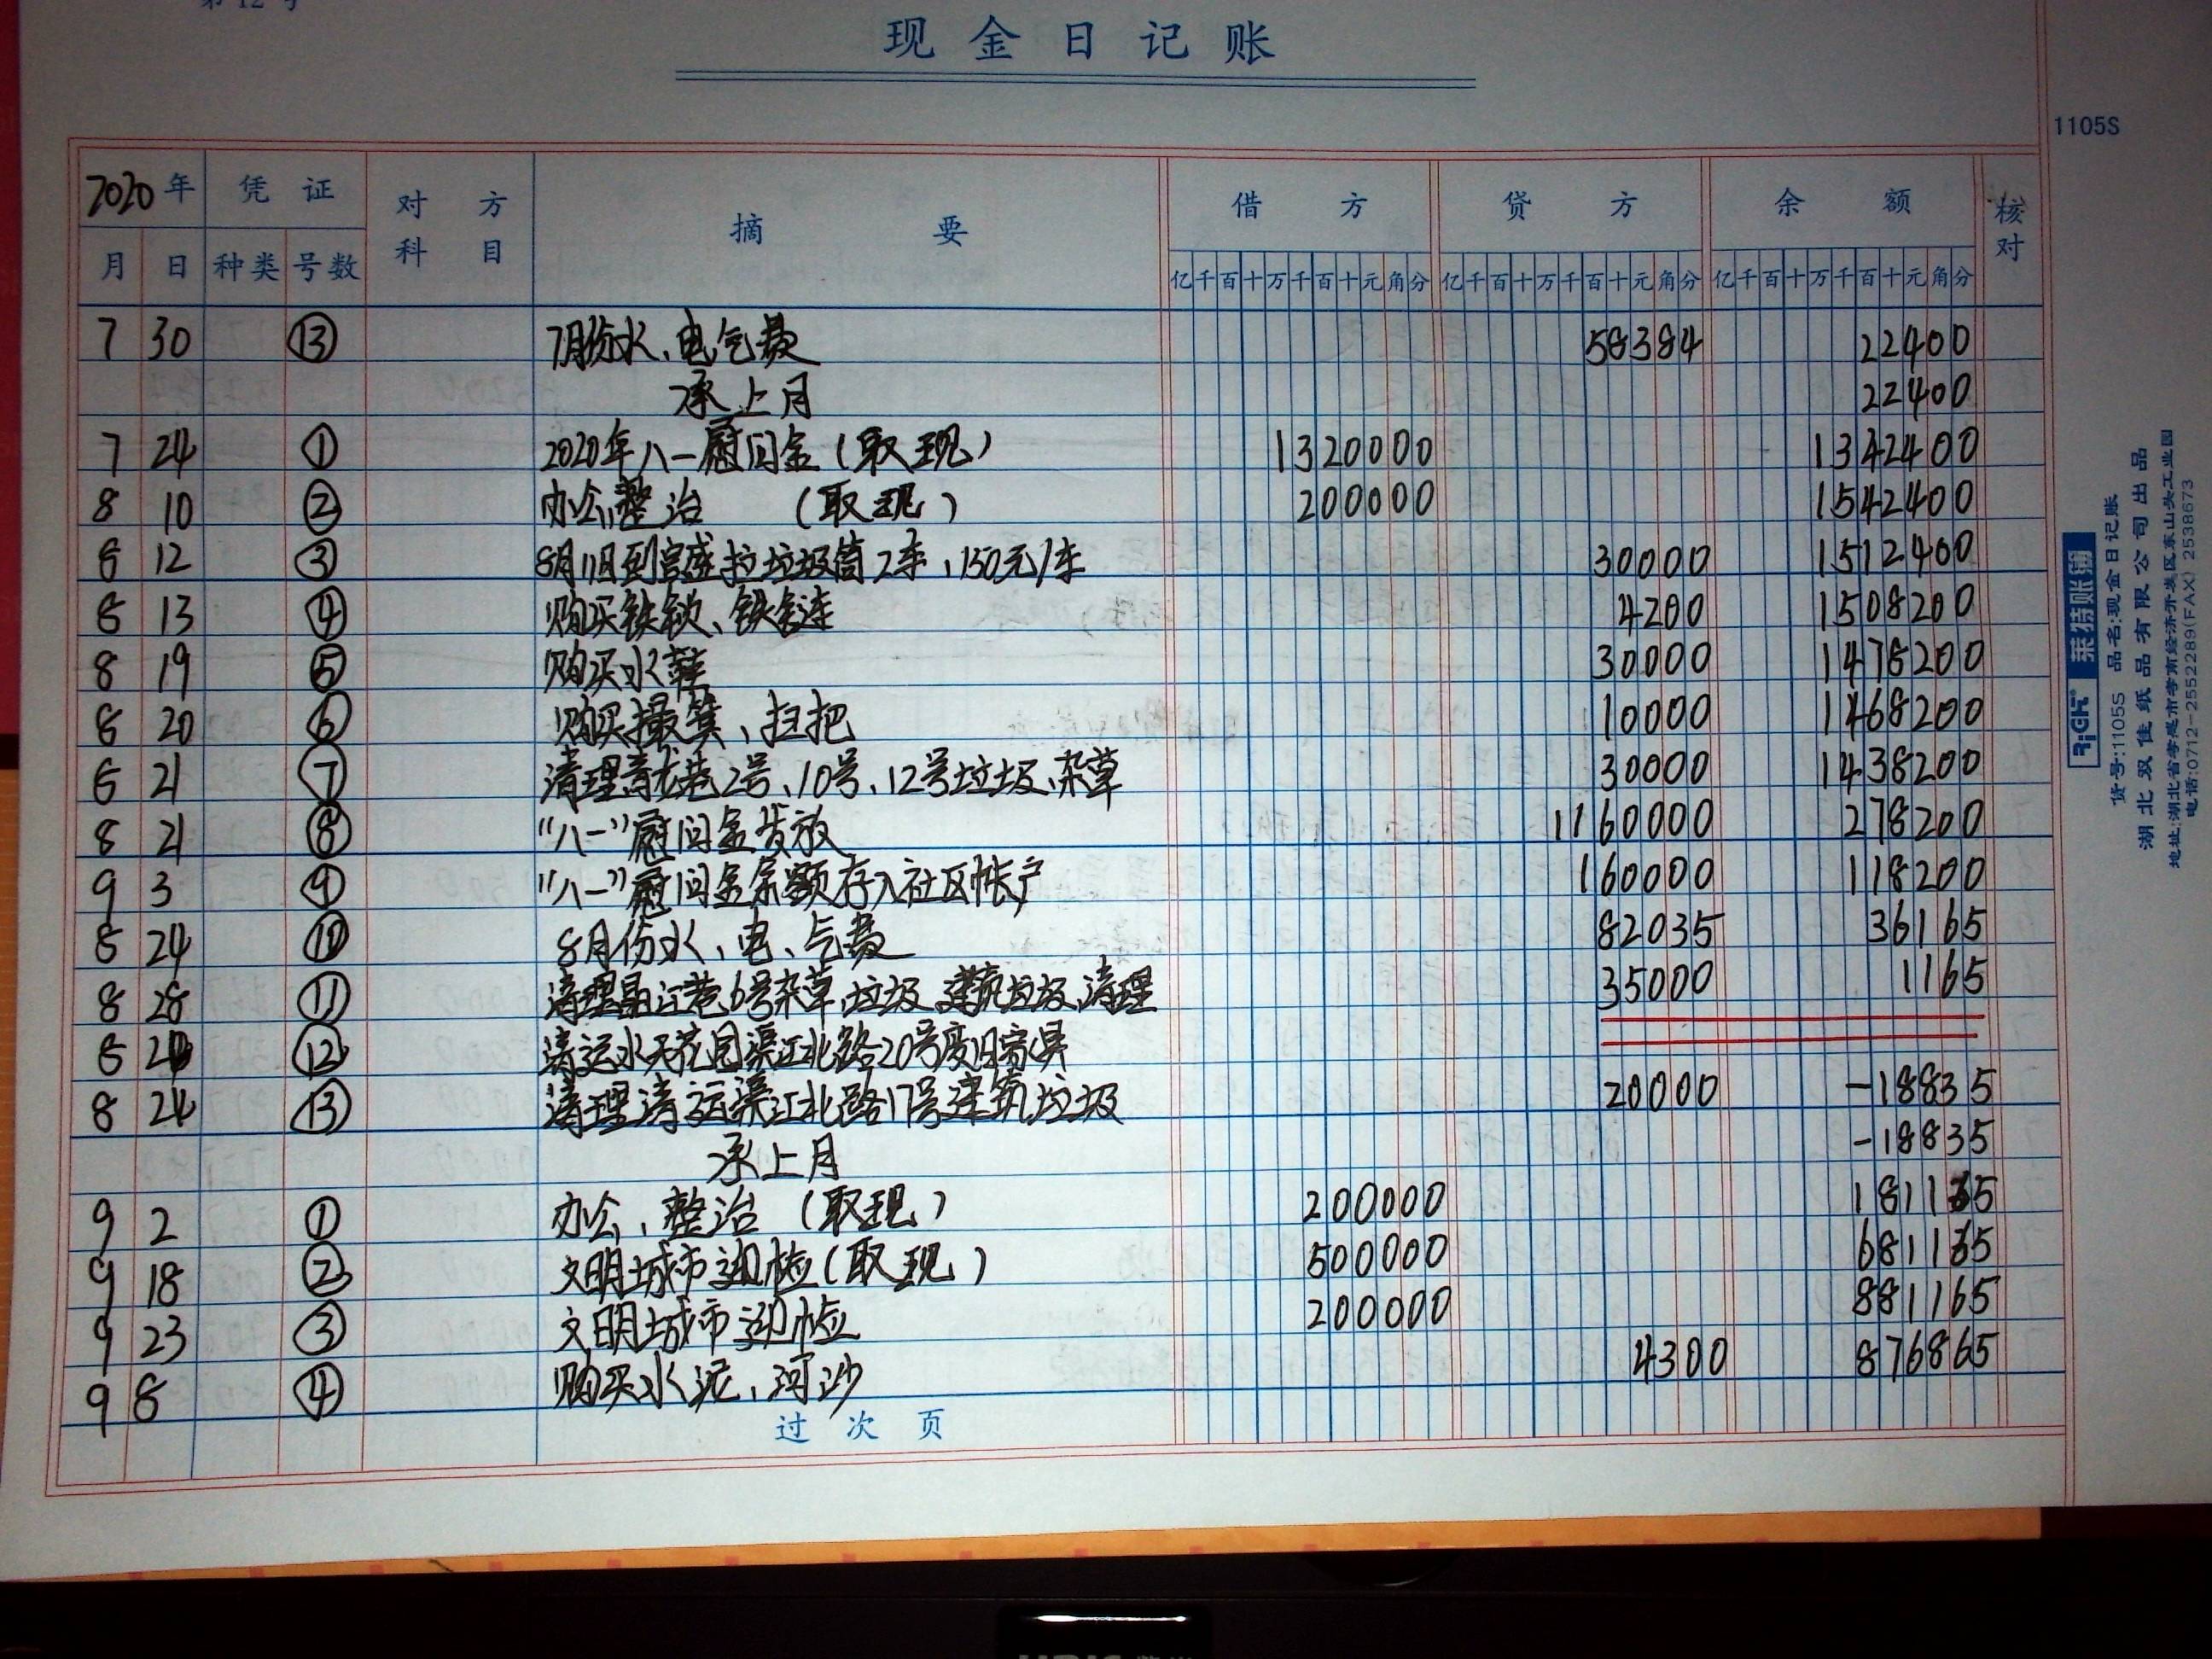 第 12 号
现金日记账
1105S
2020年 凭证 对方科目 摘要 借方 贷方 余额 核对
月 日 种类 号数 亿千百十万千百十元角分 亿千百十万千百十元角分 亿千百十万千百十元角分
7 30 ⑬ 7月份水、电气费 58384 22400
承上月 22400
7 24 ① 2020年八一慰问金(取现) 1320000 1342400
8 10 ② 办公,整治 (取现) 200000 1542400
8 12 ③ 8月11日到宫盛拉垃圾筒2车,150元/车 30000 1512400
8 13 ④ 购买铁锹、铁 4200 1508200
8 19 ⑤ 购买水鞋 30000 1478200
8 20 ⑥ 购买撮箕、扫把 10000 1468200
8 21 ⑦ 清理青龙巷2号、10号、12号垃圾、杂草 30000 1438200
8 21 ⑧ "八一"慰问金发放 1160000 278200
9 3 ⑨ "八一"慰问金余额存入社区帐户 160000 118200
8 24 ⑩ 8月份水、电、气费 82035 36165
8 28 ⑪ 清理晶江巷6号杂草垃圾、建筑垃圾、清理 35000 1165
8 ⑫ 清运水天花园渠江北路20号废旧家具
8 24 ⑬ 清理清运渠江北路17号建筑垃圾 20000 -18835
承上月 -18835
9 2 ① 办公、整治 (取现) 200000 181165
9 18 ② 文明城市迎检(取现) 500000 681165
9 23 ③ 文明城市迎检 200000 881165
9 8 ④ 购买水泥、河沙 4300 876865
过次页
RiGHT 莱特账簿
货号:1105S 品名:现金日记账
湖北双佳纸品有限公司出品
地址:湖北省孝感市孝南经济开发区东山头工业园
电话:0712-2552289(FAX) 2538673